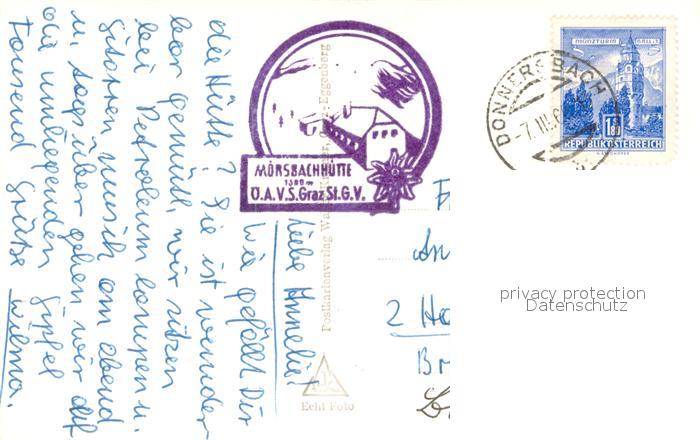 Liebe Annelie!
Wie gefällt Dir
die Hütte? Sie ist wunder
bar gemütl. wir sitzen
bei Petroleum lampen u.
Gitarren musik am abend
u. tags über gehen wir auf
die umliegenden Gipfel
Tausend Grüße Wilma.
MÖRSBACHHÜTTE
1300 m
Ö.A.V.S.Graz St.G.V.
Postkartenverlag
Eggenberg
Echt Foto
DONNERSBACH
-7.III.6
MÜNZTURM HALL I.T.
S 1.80 S
REPUBLIK ÖSTERREICH
2 Ha
Br
privacy protection
Datenschutz